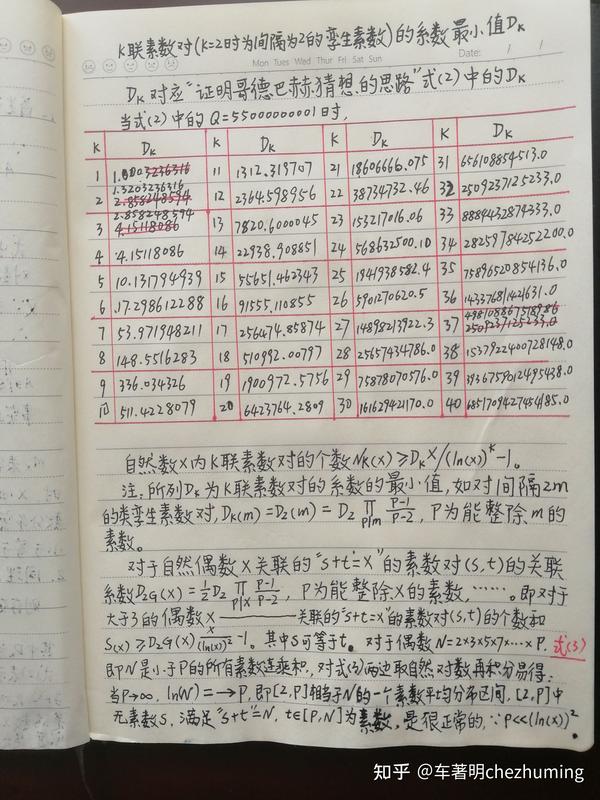 K联素数对(K=2时为间隔为2的孪生素数)的系数最小值Dk
Mon Tues Wed Thur Fri Sat Sun
Date: / /
Dk对应"证明哥德巴赫猜想的思路"式(2)中的Dk
当式(2)中的Q=5500000001时,
K Dk K Dk K Dk K Dk
1 1.0003236316 11 1312.319707 21 18606666.075 31 656108854513.0
1.3203236316
2 2.858248594 12 2364.598956 22 38734732.46 32 2509237125233.0
2.858248594
3 4.15118086 13 7820.6000045 23 153217016.06 33 8884432874333.0
4 4.15118086 14 22938.908851 24 568632500.10 34 28259784252200.0
5 10.131794939 15 55651.462343 25 1941938582.4 35 75896520854136.0
6 17.298612288 16 91555.110855 26 5901270620.5 36 143376814214631.0
7 53.971948211 17 256474.85874 27 14898213922.3 37 498108867518986
2509237125233.0
8 148.5516283 18 510992.00797 28 25657434786.0 38 1537922400728148.0
9 336.034326 19 1900972.5756 29 75878070576.0 39 3936759012495438.0
10 511.4228079 20 6423764.2809 30 161629421170.0 40 6851709427454185.0
自然数X内K联素数对的个数Nk(x)≥DkX/(ln(x))^k-1。
注:所列Dk为K联素数对的系数的最小值,如对间隔2m
的类孪生素数对,Dk(m)=D2(m)=D2 ∏p|m (p-1)/(p-2),P为能整除m的
素数。
对于自然偶数X关联的"s+t=X"的素数对(s,t)的关联
系数D2G(X)=½D2 ∏p|X (p-1)/(p-2),P为能整除X的素数,……。即对于
大于3的偶数X————关联的"s+t=X"的素数对(s,t)的个数和
S(x)≥D2G(x) x/(ln(x))²-1。其中S可等于t。对于偶数N=2×3×5×7×…×P, 式(3)
即N是小于P的所有素数连乘积,对式(3)两边取自然对数再积分易得:
当P→∞, ln(N)=→P,即[2,P]相当于N的一个素数平均分布区间,[2,P]中
无素数S,满足"s+t"=N,t∈[P,N]为素数,是狠正常的,∵P<<(ln(x))²。
知乎 @车著明chezhuming